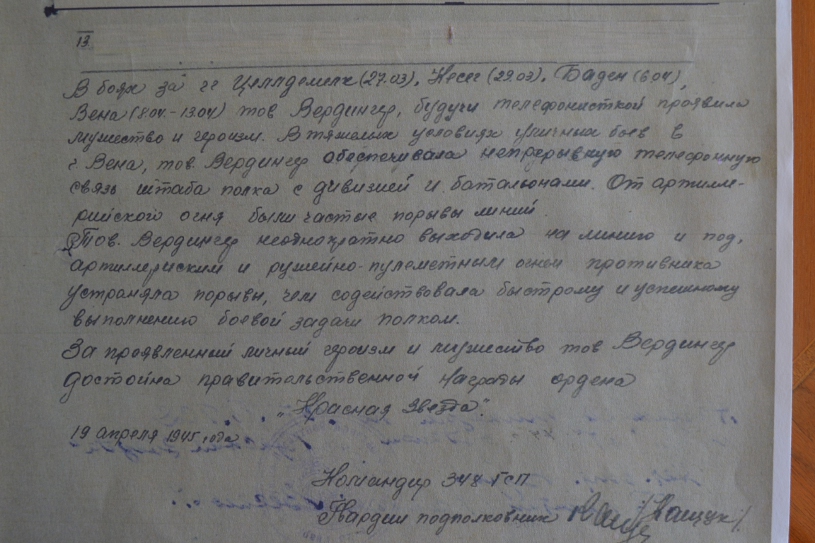 13
В боях за гг Целлдемелк (27.03), Кесег (29.03), Баден (6.04),
Вена (8.04-13.04) тов Вердингер, будучи телефонисткой проявила
мужество и героизм. В тяжелых условиях уличных боев в
г Вена, тов. Вердингер обеспечивала непрерывную телефонную
связь штаба полка с дивизией и батальонами. От артилле-
рийского огня были частые порывы линий.
Тов. Вердингер неоднократно выходила на линию и под,
артиллериским и ружейно-пулеметным огнём противника
устраняла порывы, чем содействовала быстрому и успешному
выполнению боевой задачи полком.
За проявленный личный героизм и мужество тов Вердингер
достойна правительственной награды ордена
„Красная Звезда".
19 апреля 1945 года
Командир 348 ГСП
Гвардии подполковник /Кащук/.